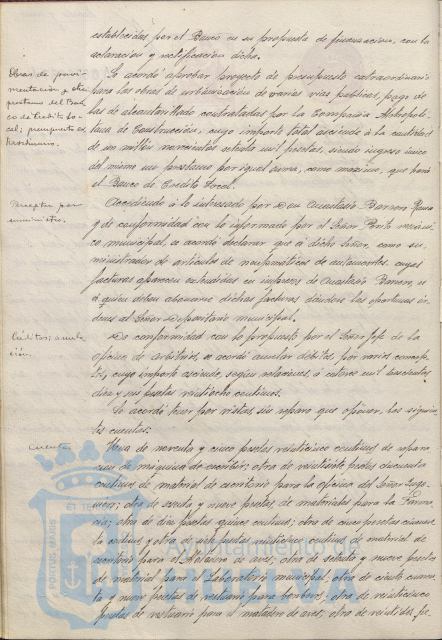 establecidas por el Banco en su propuesta de financiación, con la
aclaración y rectificación dicha.
Obras de pavi-
mentación y otras
préstamo del Ban-
co de Crédito Lo-
cal; presupuesto ex-
traordinario.
Se acordó aprobar proyecto de presupuesto extraordinario
para las obras de urbanización de varias vías públicas, pago de
las de alcantarillado contratadas por la Compañía Metropoli-
tana de Construcción, cuyo importe total asciende a la cantidad
de un millón novecientas ochenta mil pesetas, siendo ingreso único
del mismo un préstamo por igual suma, como máximo, que hará
el Banco de Crédito Local.
Receptor por
suministros.
Accediendo a lo interesado por Don Anastasio Barrero
y de conformidad con lo informado por el Señor Perito mecáni-
co municipal, se acordó declarar que a dicho Señor, como su-
ministrador de artículos de neumáticos de automóviles, cuyas
facturas aparecen extendidas en impresos de Anastasio Barrero, es
a quien deben abonarse dichas facturas dándose las oportunas ór-
denes al Señor Depositario municipal.
Créditos; anula-
ción.
De conformidad con lo propuesto por el Señor Jefe de la
oficina de arbitrios, se acordó anular débitos por varios concep-
tos, cuyo importe asciende, según relaciones, a catorce mil doscientas
diez y seis pesetas veintiocho céntimos.
Se acordó tener por vistas, sin reparo que oponer, las siguien-
tes cuentas:
Cuentas
Una de noventa y cinco pesetas veinticinco céntimos de repara-
ción de máquina de escribir; otra de veintisiete pesetas cincuenta
céntimos de material de escritorio para la oficina del Señor Inge-
niero; otra de sesenta y nueve pesetas de materiales para la Farma-
cia; otra de diez pesetas quince céntimos; otra de cinco pesetas cincuen-
ta céntimos y otra de seis pesetas veinticinco céntimos de material de
escritorio para el Matadero de aves; otra de setenta y nueve pesetas
de material para el Laboratorio municipal; otra de ciento cuaren-
ta y nueve pesetas de vestuario para bomberos; otra de veinticinco
pesetas de vestuario para el matadero de aves; otra de veintidós pe-
PORTUS MARIS
ET TERRÆ
Ayuntamiento de